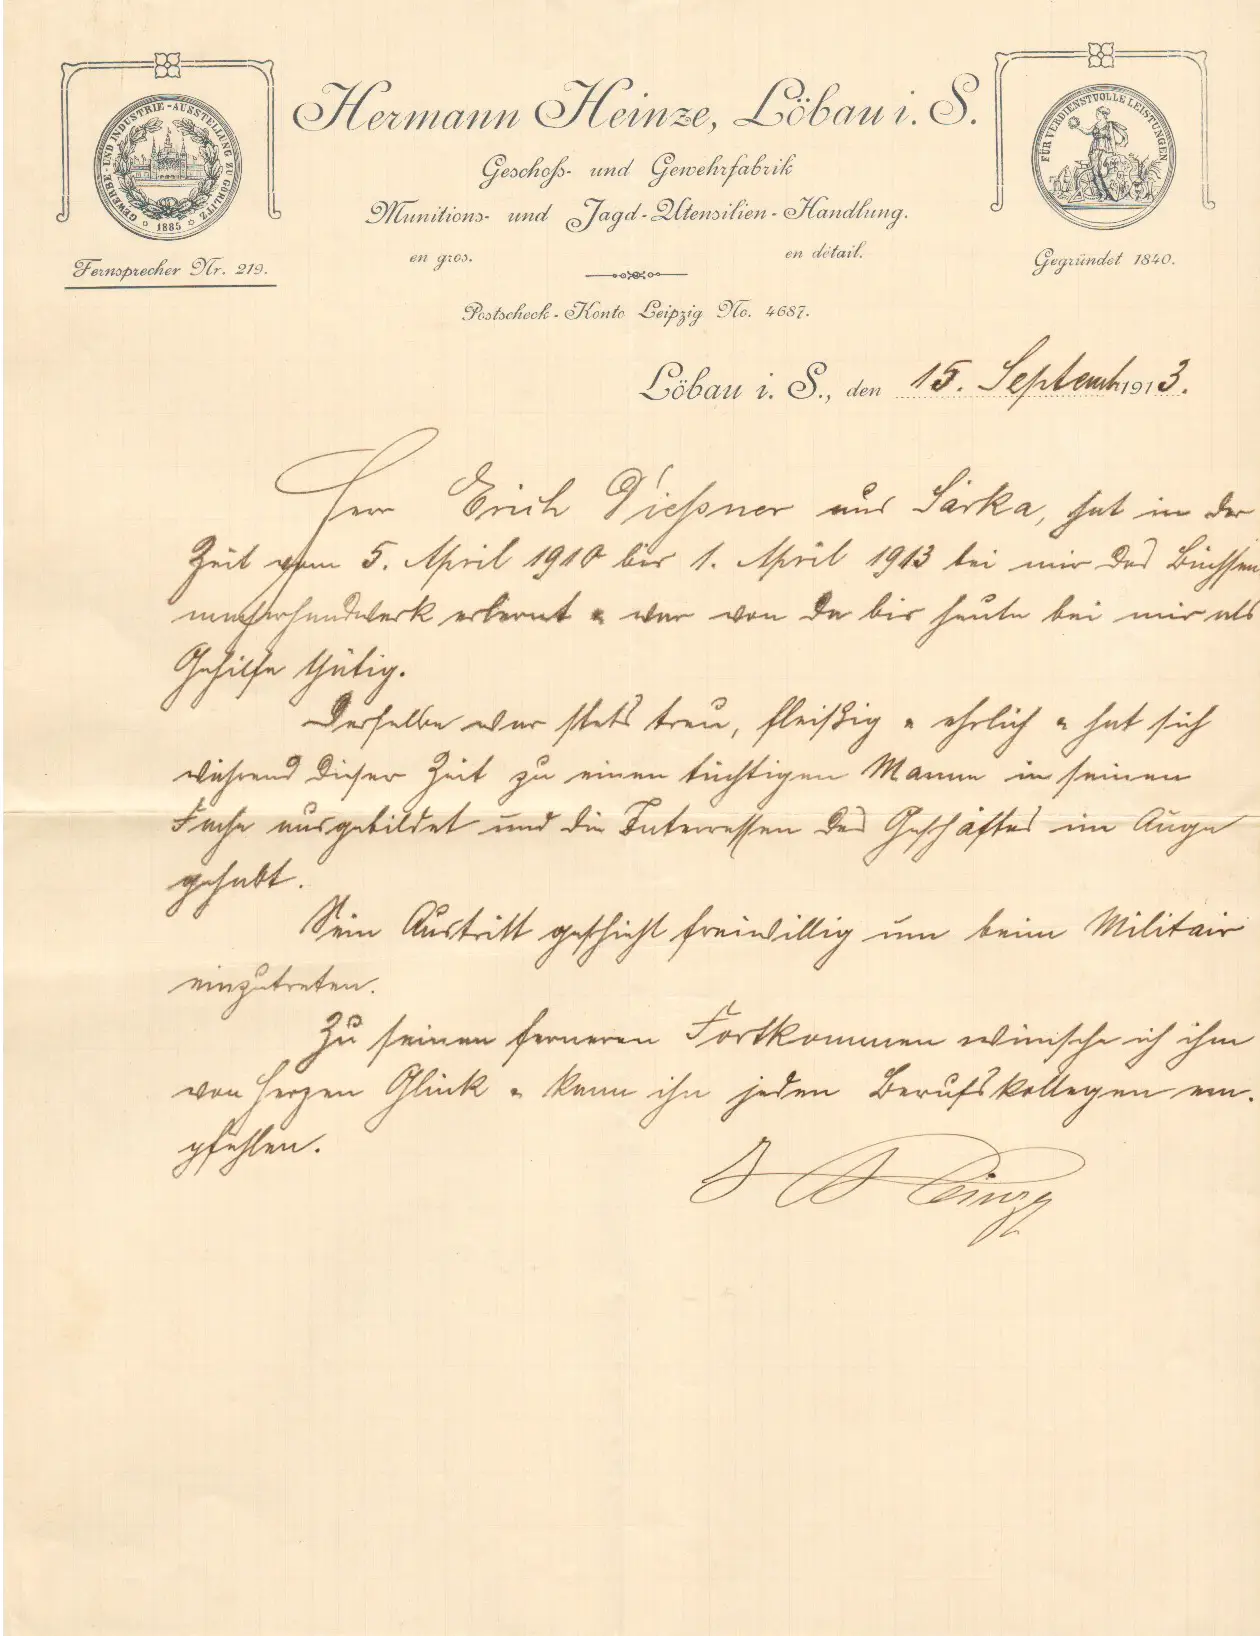 GEWERBE- UND INDUSTRIE-AUSSTELLUNG ZU GÖRLITZ
1885
Fernsprecher Nr. 219.
Hermann Heinze, Löbau i. S.
Geschoss- und Gewehrfabrik
Munitions- und Jagd-Utensilien-Handlung.
en gros. en détail.
Postscheck-Konto Leipzig No. 4687.
FÜR VERDIENSTVOLLE LEISTUNGEN
Gegründet 1840.
Löbau i. S., den 15. Septemb. 1913.
Herr Erich Dießner aus Särka, hat in der
Zeit vom 5. April 1910 bis 1. April 1913 bei mir das Büchsen
macherhandwerk erlernt u war von da bis heute bei mir als
Gehilfe thätig.
Derselbe war stets treu, fleißig u ehrlich u hat sich
während dieser Zeit zu einen tüchtigen Manne in seinen
Fache ausgebildet und die Interressen des Geschäftes im Auge
gehabt.
Sein Austritt geschieht freiwillig um beim Militair
einzutreten.
Zu seinen ferneren Fortkommen wünsche ich ihm
von Herzen Glück u kann ihn jeden Berufskollegen em-
pfehlen.
Heinze